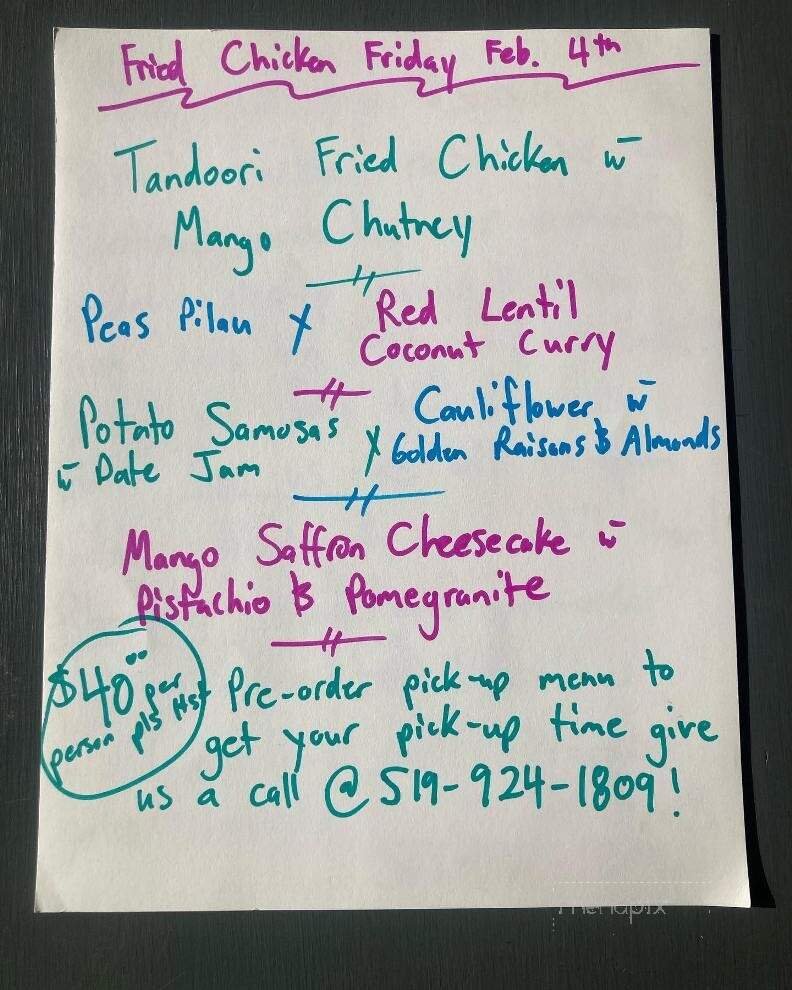 Fried Chicken Friday Feb. 4th
Tandoori Fried Chicken w̄
Mango Chutney
Peas Pilau
Red Lentil
Coconut Curry
Potato Samosas
w̄ Date Jam
Cauliflower w̄
Golden Raisans & Almonds
Mango Saffron Cheesecake w̄
Pistachio & Pomegranite
$40.00 per
person pls Hst
Pre-order pick-up menu to
get your pick-up time give
us a call @ 519-924-1809!
menupix